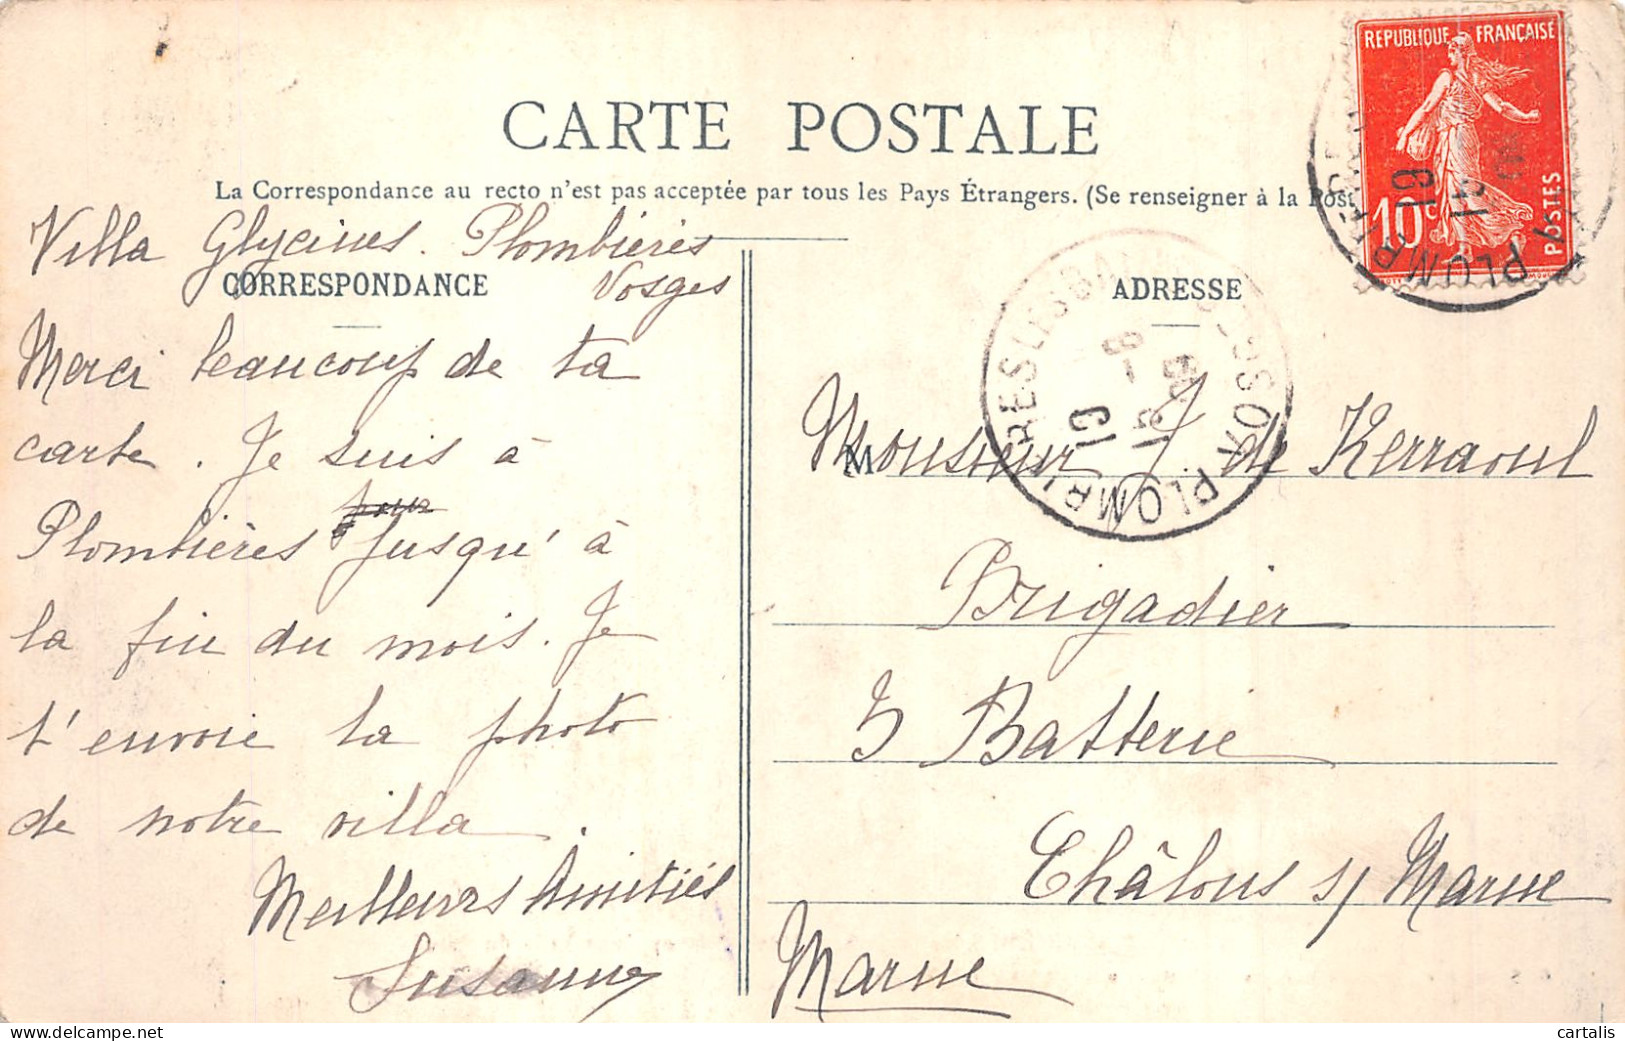 CARTE POSTALE
La Correspondance au recto n'est pas acceptée par tous les Pays Étrangers. (Se renseigner à la Post
Villa Glycines. Plombières
Vosges
CORRESPONDANCE
Merci beaucoup de ta
carte. Je suis à
pour
Plombières jusqu'à
la fin du mois. Je
t'envoie la photo
de notre villa.
Meilleures Amitiés
Susanne
ADRESSE
M
Monsieur J. de Kerraoul
Brigadier
5 Batterie
Châlons s/ Marne
Marne
REPUBLIQUE FRANÇAISE
10c
POSTES
PLOMBIERES LES BAINS VOSGES
cartalis